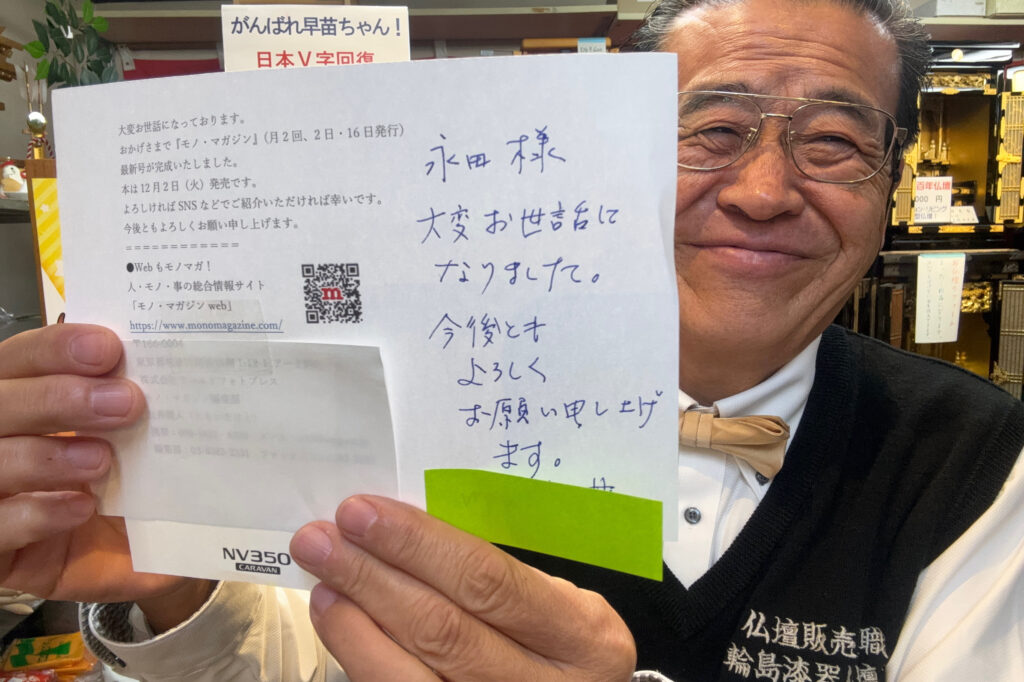 がんばれ早苗ちゃん！
日本V字回復
大変お世話になっております。
おかげさまで『モノ・マガジン』（月２回、２日・16日発行）
最新号が完成いたしました。
本は12月２日（火）発売です。
よろしければSNSなどでご紹介いただければ幸いです。
今後ともよろしくお願い申し上げます。
＝＝＝＝＝＝＝＝＝＝＝＝
●Webもモノマガ！
人・モノ・事の総合情報サイト
「モノ・マガジンweb」
https://www.monomagazine.com/
m
永田 様
大変お世話に
なりました。
今後とも
よろしく
お願い申し上げ
ます。
NV350
CARAVAN
百年仏壇
000 円
仏壇販売職
輪島漆器仏壇